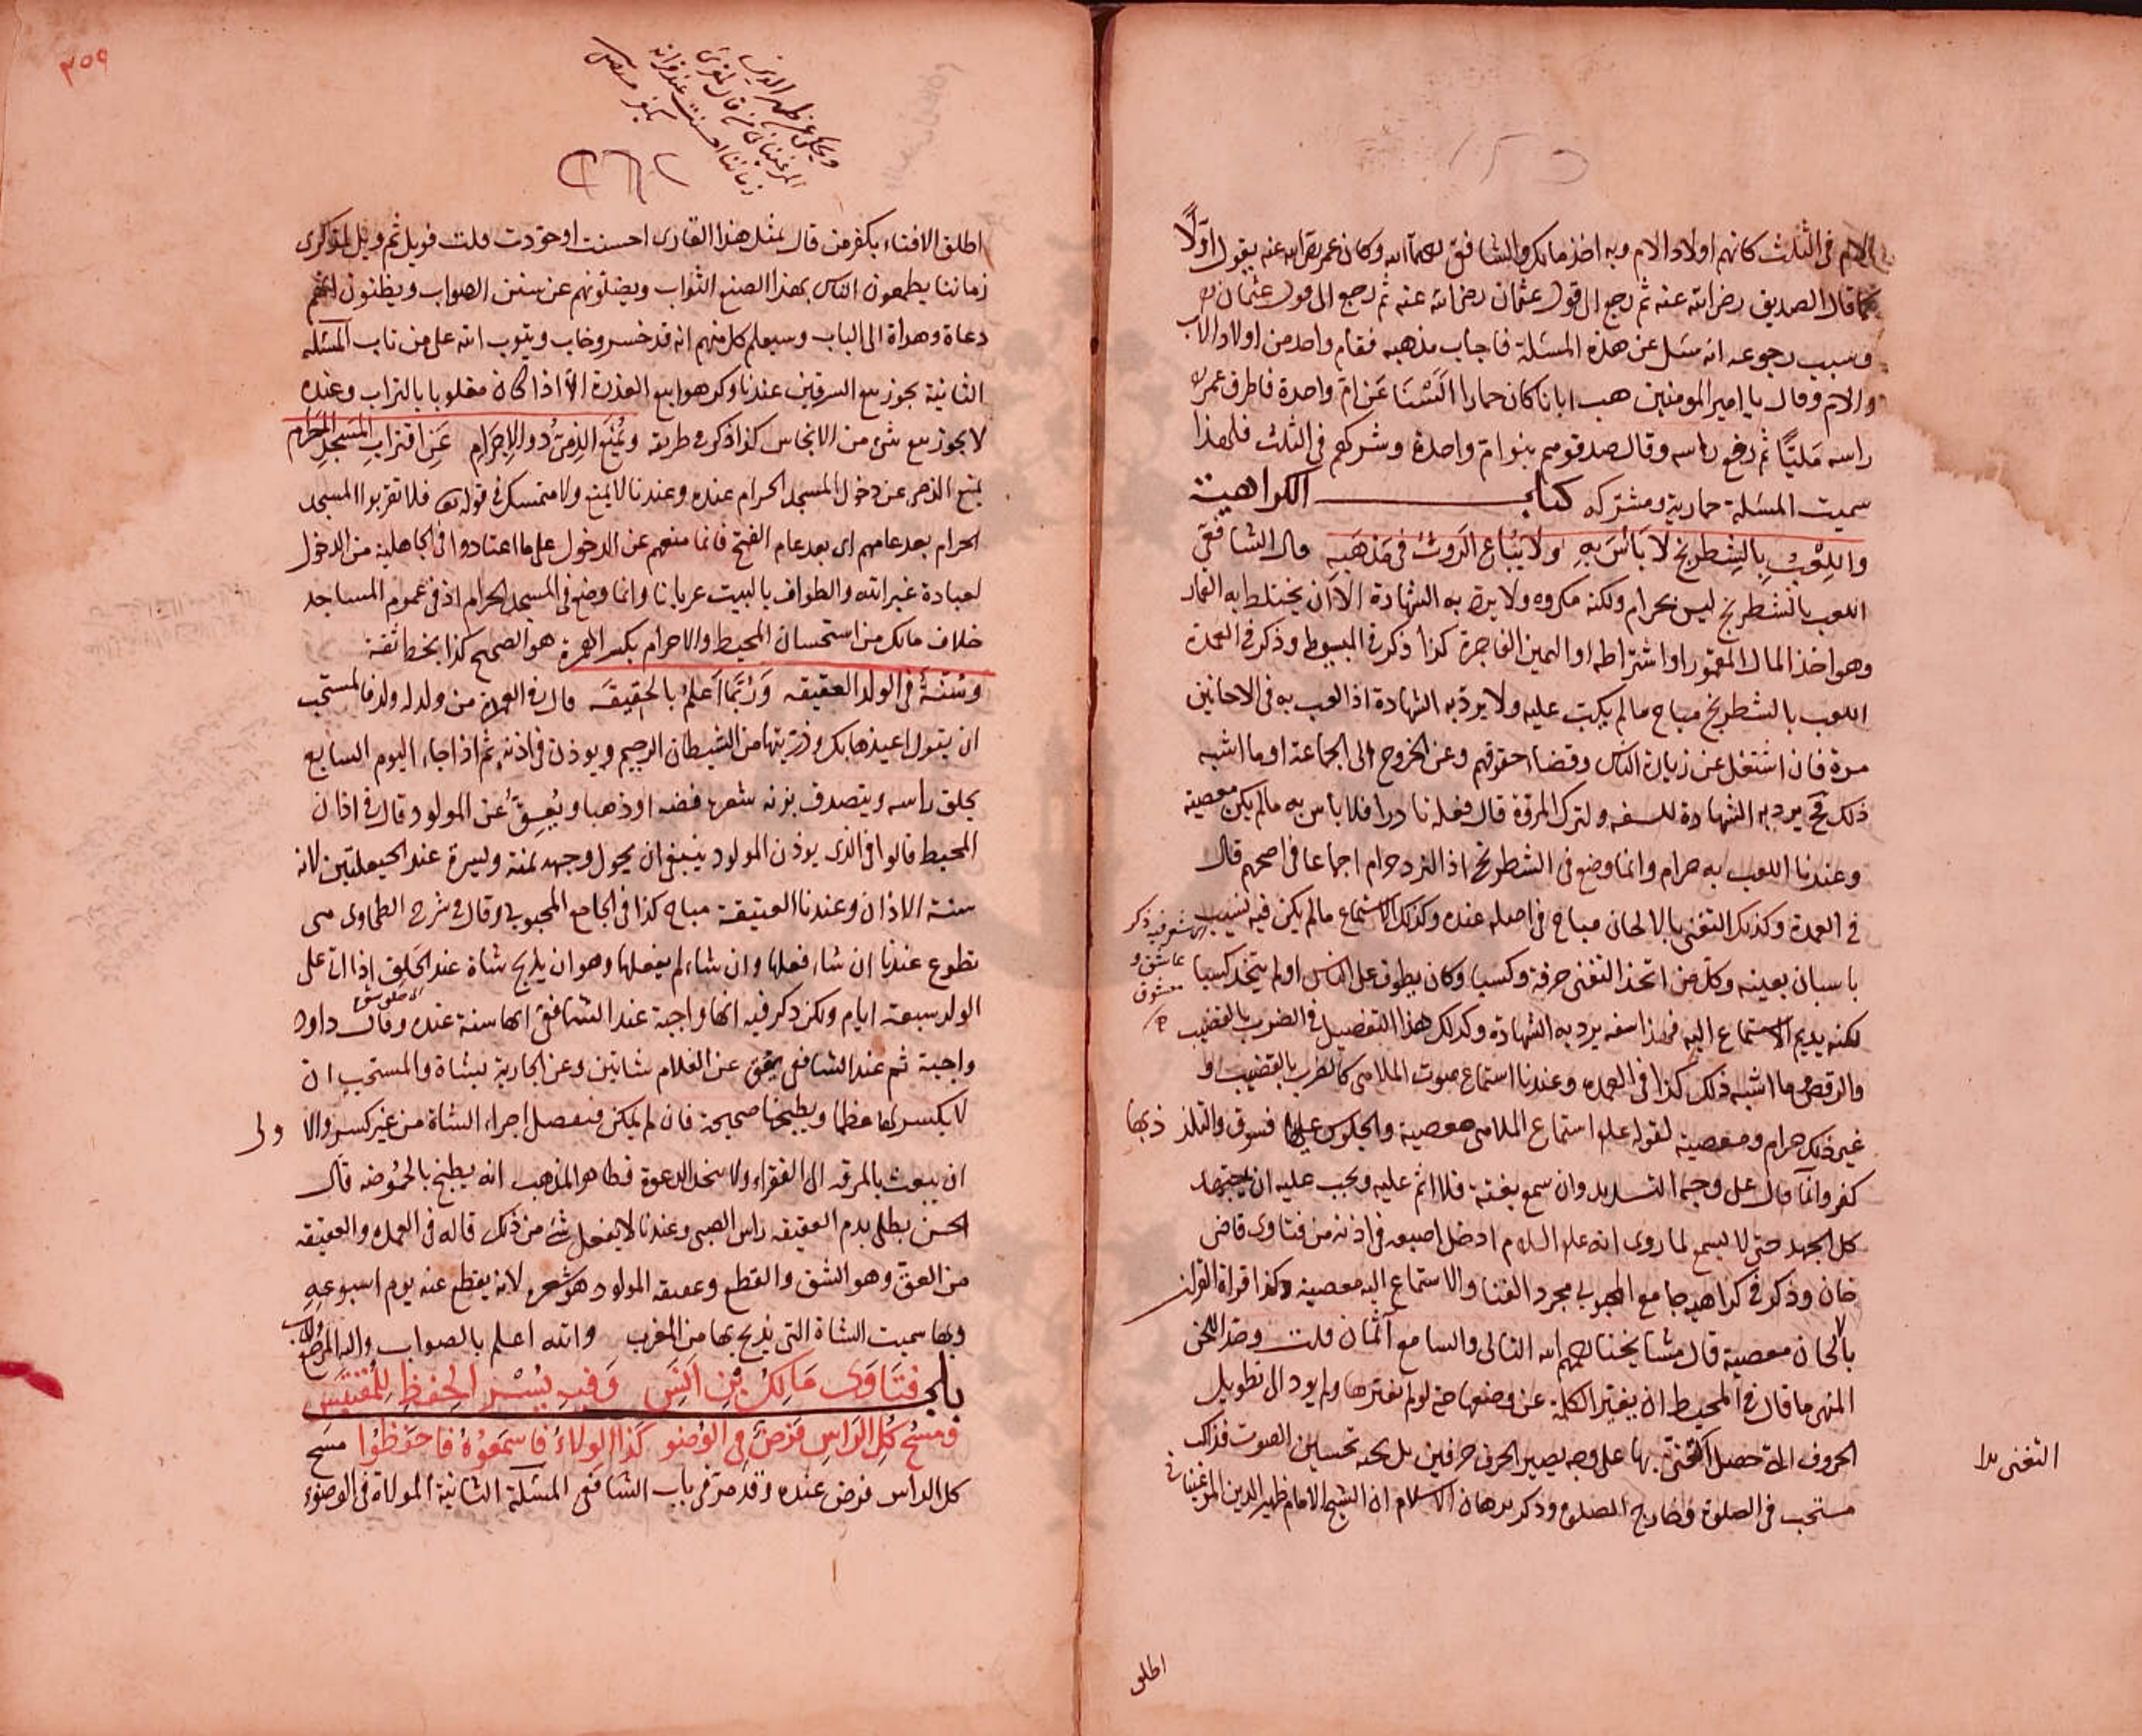 الام في الثلث كانهم اولاد الام وبه اخذ مالك والشافعي رحمهما الله وكان عمر رضي الله عنه يقول اولا
كما قال الصديق رضي الله عنه ثم رجع الى قول عثمان رضي الله عنه ثم رجع الى قول عثمان
وسبب رجوعه انه سئل عن هذه المسئلة فاجاب بمذهبه فقام واحد من اولاد الاب
والام وقال يا امير المومنين هب ابانا كان حمارا السنا عن ام واحدة فاطرق عمر
راسه مليا ثم رفع راسه وقال صدقوهم بنوام واحدة وشركهم في الثلث فلهذا
سميت المسئلة حمارية ومشتركه كتاب الكراهية
واللعب بالشطرنج لا باس به ولا يباع الروث في مذهبه قال الشافعي
اللعب بالشطرنج ليس بحرام ولكنه مكروه ولا يرد به الشهادة الا ان يختلط به القمار
وهو اخذ المال المقمور او اشتراطه او اليمين الفاجرة كذا ذكر في المبسوط وذكر في العمدة
اللعب بالشطرنج مباح ما لم يكب عليه ولا يرد به الشهادة اذا لعب به في الاحانين
مرة فان اشتغل عن زيارة الناس وقضاء حقوقهم وعن الخروج الى الجماعة او ما اشبه
ذلك فح يرد به الشهادة للسفه ولترك المروة قال فعله نادرا فلا باس به ما لم يكن معصية
وعندنا اللعب به حرام وانما وضع في الشطرنج اذ النرد حرام اجماعا في اصحهم قال
في العمدة وكذلك التغني بالالحان مباح في اصله عنده وكذلك الاستماع ما لم يكن فيه نسيب
شعر فيه ذكر
عاشق و
معشوق
باسبان بعينه وكل من اتخذ التغني حرفة وكسبا وكان يطوف على الناس او لم يتخذ كسبا
لكنه يديم الاستماع اليه فهذا سفه يرد به الشهادة وكذلك هذا التفصيل في الضرب بالقضيب
والرقص وما اشبه ذلك كذا في العمده وعندنا استماع صوت الملاهي كالضرب بالقضيب و
غير ذلك حرام ومعصية لقوله علم استماع الملاهي معصية والجلوس عليها فسوق والتلذذ بها
كفر وانما قال على وجه التشديد وان سمع بغتة فلا اثم عليه ويجب عليه ان يجتهد
كل الجهد حتى لا يسمع لما روى انه عليه السلام ادخل اصبعه في اذنه من فتاوى قاضي
خان وذكر في كراهية جامع المحبوبي مجرد الغنا والاستماع اليه معصية وكذا قراة القران
بالحان معصية قال مشايخنا رحمهم الله التالي والسامع آثمان قلت وهذا اللحن
المنهى ما قال في المحيط ان يغير الكلمة عن وضعها حتى لو لم يغيرها ولم يود الى تطويل
الحروف التي حصل التغني بها على وجه يصير الحرف حرفين بل بحه تحسين الصوت فذلك
مستحب في الصلوة وخارج الصلوة وذكر برهان الاسلام ان الشيخ الامام ظهير الدين المرغيناني
التغني بدا
اطلق
٣٥٩
ويحكى عن ظهير الدين
المرغيناني من قال لمقرئ
زماننا احسنت عند قراته
يكفر
اطلق الافتاء بكفر من قال لمثل هذا القارى احسنت او جودت قلت فويل ثم ويل لمقرى
زماننا يطمعون الناس بهذا الصنع الثواب ويضلونهم عن سنن الصواب ويظنون انهم
دعاة وهداة الى الباب وسيعلم كل منهم انه قد خسر وخاب ويتوب الله على من تاب المسئلة
الثانية يجوز بيع السرقين عندنا وكرهوا بيع العذرة الا اذا كان مغلوبا بالتراب وعنده
لا يجوز بيع شئ من الانجاس كذا ذكر في طريقه ويمنع الذمي ذو الاجرام عن اقتراب المسجد الحرام
يمنع الذمي عن دخول المسجد الحرام عنده وعندنا لا يمنع ولا متمسك في قوله تعالى فلا تقربوا المسجد
الحرام بعد عامهم اى بعد عام الفتح فانما منعهم عن الدخول على ما اعتادوا في الجاهلية من الدخول
لعبادة غير الله والطواف بالبيت عريانا وانما وضع في المسجد الحرام اذ في عموم المساجد
خلاف مالك من استحسان المحيط والاجرام بكسر الهمزة هو الصحيح كذا بخط ثقة
وسنة في الولد العقيقه وربنا اعلم بالحقيقه قال في العمدة من ولد له ولد فالمستحب
ان يقول اعيذها بك وذريتها من الشيطان الرجيم ويوذن في اذنه ثم اذا جاء اليوم السابع
يحلق راسه ويتصدق بزنة شعره فضه او ذهبا ويعق عن المولود قال في اذان
المحيط قالوا في الذي يوذن المولود ينبغي ان يحول وجهه يمنة ويسرة عند الحيعلتين لانه
سنة الاذان وعندنا العقيقة مباح كذا في الجامع المحبوبي وقال في شرح الطحاوى هي
تطوع عندنا ان شاء فعلها وان شاء لم يفعلها وهو ان يذبح شاة عند الحلق اذا اتى على
الولد سبعة ايام ولكن ذكر فيه انها واجبة عند الشافعي انها سنة عنده وقال داود
واجبة ثم عند الشافعي يعق عن الغلام شاتين وعن الجارية بشاة والمستحب ان
لا يكسر لها عظما ويطبخها صحيحة فان لم يكن فيفصل اجزاء الشاة من غير كسر والاولى
ان يبعث بالمرقه الى الفقراء ولا يتخذ الدعوة فظاهر المذهب انه يطبخ بالحموضه قال
الحسن يطلى بدم العقيقه راس الصبي وعندنا لا يفعل شئ من ذلك قاله في العمده والعقيقه
من العق وهو الشق والقطع وعقيقه المولود هو شعره لانه يقطع عنه يوم اسبوعه
وبها سميت الشاة التي يذبح بها من المغرب والله اعلم بالصواب واليه المرجع والماب
باب فتاوى مالك بن انس وفيه يسر الحفظ للمقتبس
ومسح كل الراس فرض في الوضو كذا الولاء فاسمعوه فاحفظوا مسح
كل الراس فرض عنده وقد مر في باب الشافعي المسئلة الثانية الموالاة في الوضوء